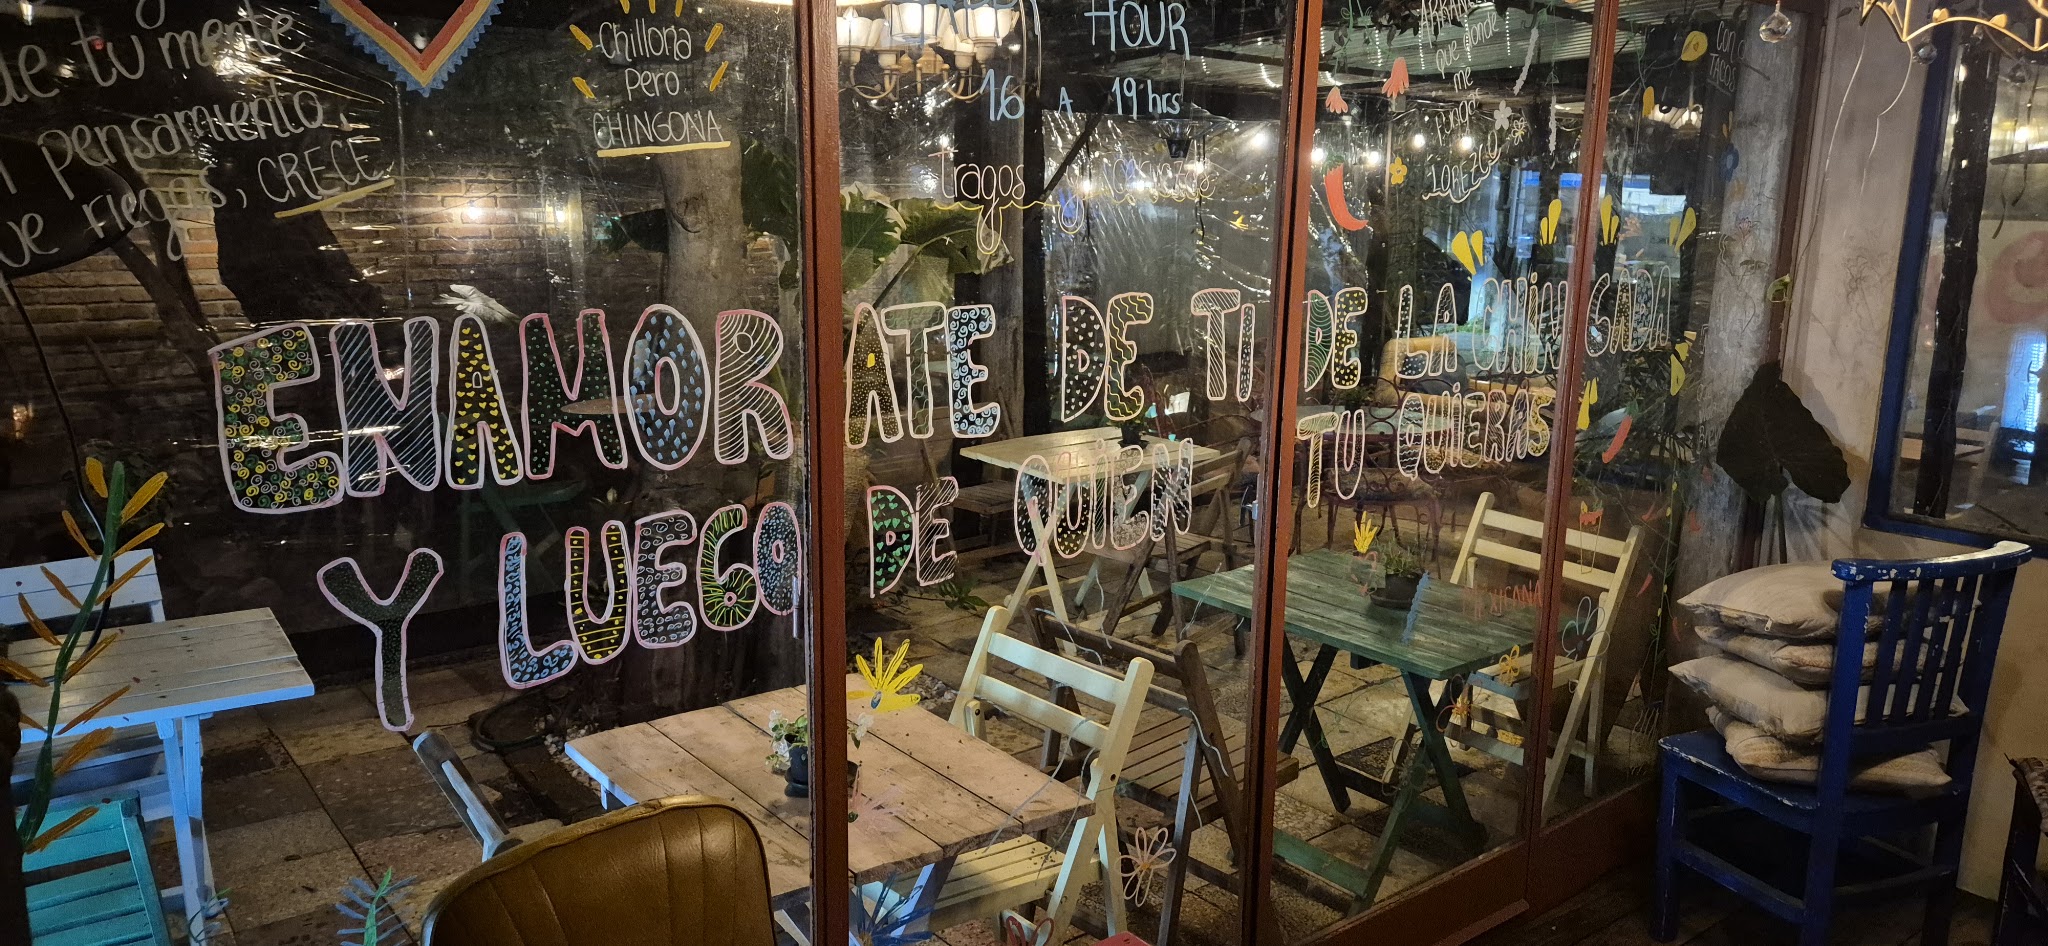 de tu mente
pensamiento,
riegas, CRECE
Chillona
Pero
CHINGONA
HOUR
16 A 19 hrs
tragos y
que donde
me
pongas
FLOREZCO
con
TACOS
ENAMORATE DE TI DE LA CHINGADA
Y LUEGO DE QUIEN TU QUIERAS
MEXICANA